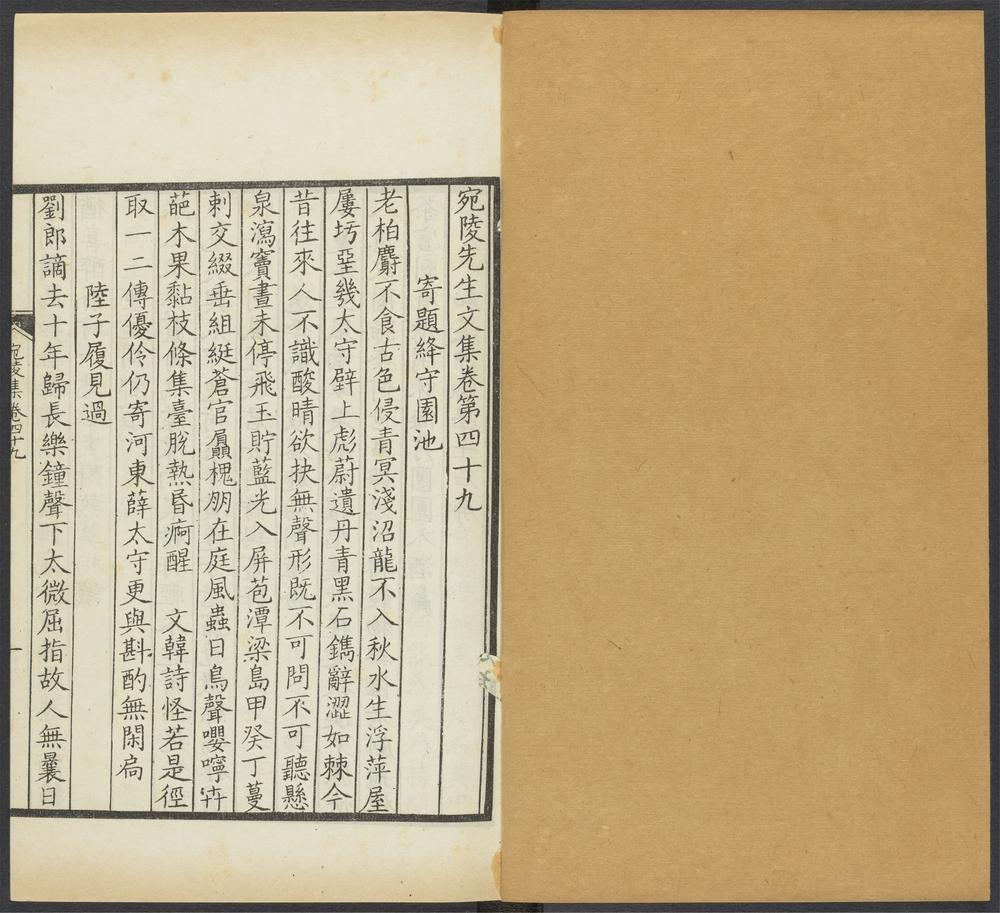 宛陵先生文集卷第四十九
寄題絳守園池
老柏麝不食古色侵青冥淺沼龍不入秋水生浮萍屋
屢圬堊幾太守壁上彪蔚遺丹青黑石鐫辭澀如棘今
昔往來人不識酸晴欲抉無聲形既不可問不可聽懸
泉瀉竇晝未停飛玉貯藍光入屏苞潭梁島甲癸丁蔓
刺交綴垂組綎蒼官贔槐朋在庭風蟲日鳥聲嚶嚀卉
葩木果黏枝條集臺脫熱昏痾醒　文韓詩怪若是徑
取一二傳優伶仍寄河東薛太守更與斟酌無閑扃
陸子履見過
劉郎謫去十年歸長樂鐘聲下太微屈指故人無曩日
宛陵集卷四十九
一